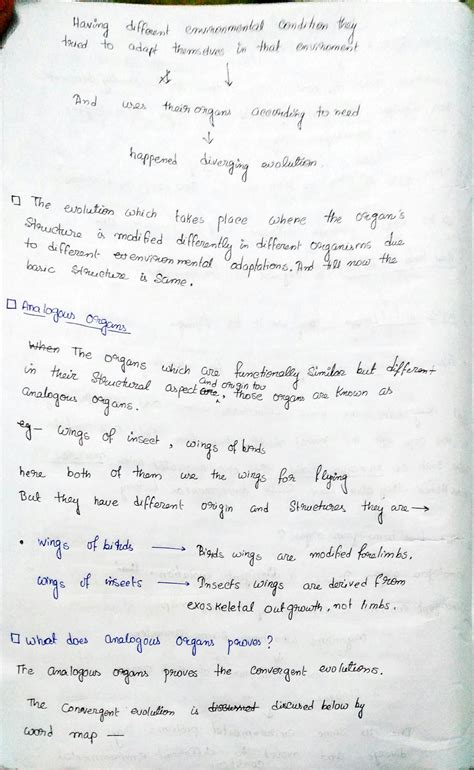 Having different environmental condition they
tried to adapt themselves in that enviroment
↓
And uses their organs according to need
↓
happened diverging evolution.
□ The evolution which takes place where the organ's
structure is modified differently in different organisms due
to different environmental adaptations. And till now the
basic structure is same.
□ Analogous organs
When The organs which are functionally similar but different
in their structural aspect are and origin too, those organs are known as
analogous organs.
eg- wings of insect, wings of birds
here both of them use the wings for flying
But they have different origin and structures they are →
• wings of birds → Birds wings are modified forelimbs.
wings of insects → Insects wings are derived from
exoskeletal outgrowth, not limbs.
□ what does analogous organs proves?
The analogous organs proves the convergent evolutions.
The Convergent evolution is discussed discused below by
word map —